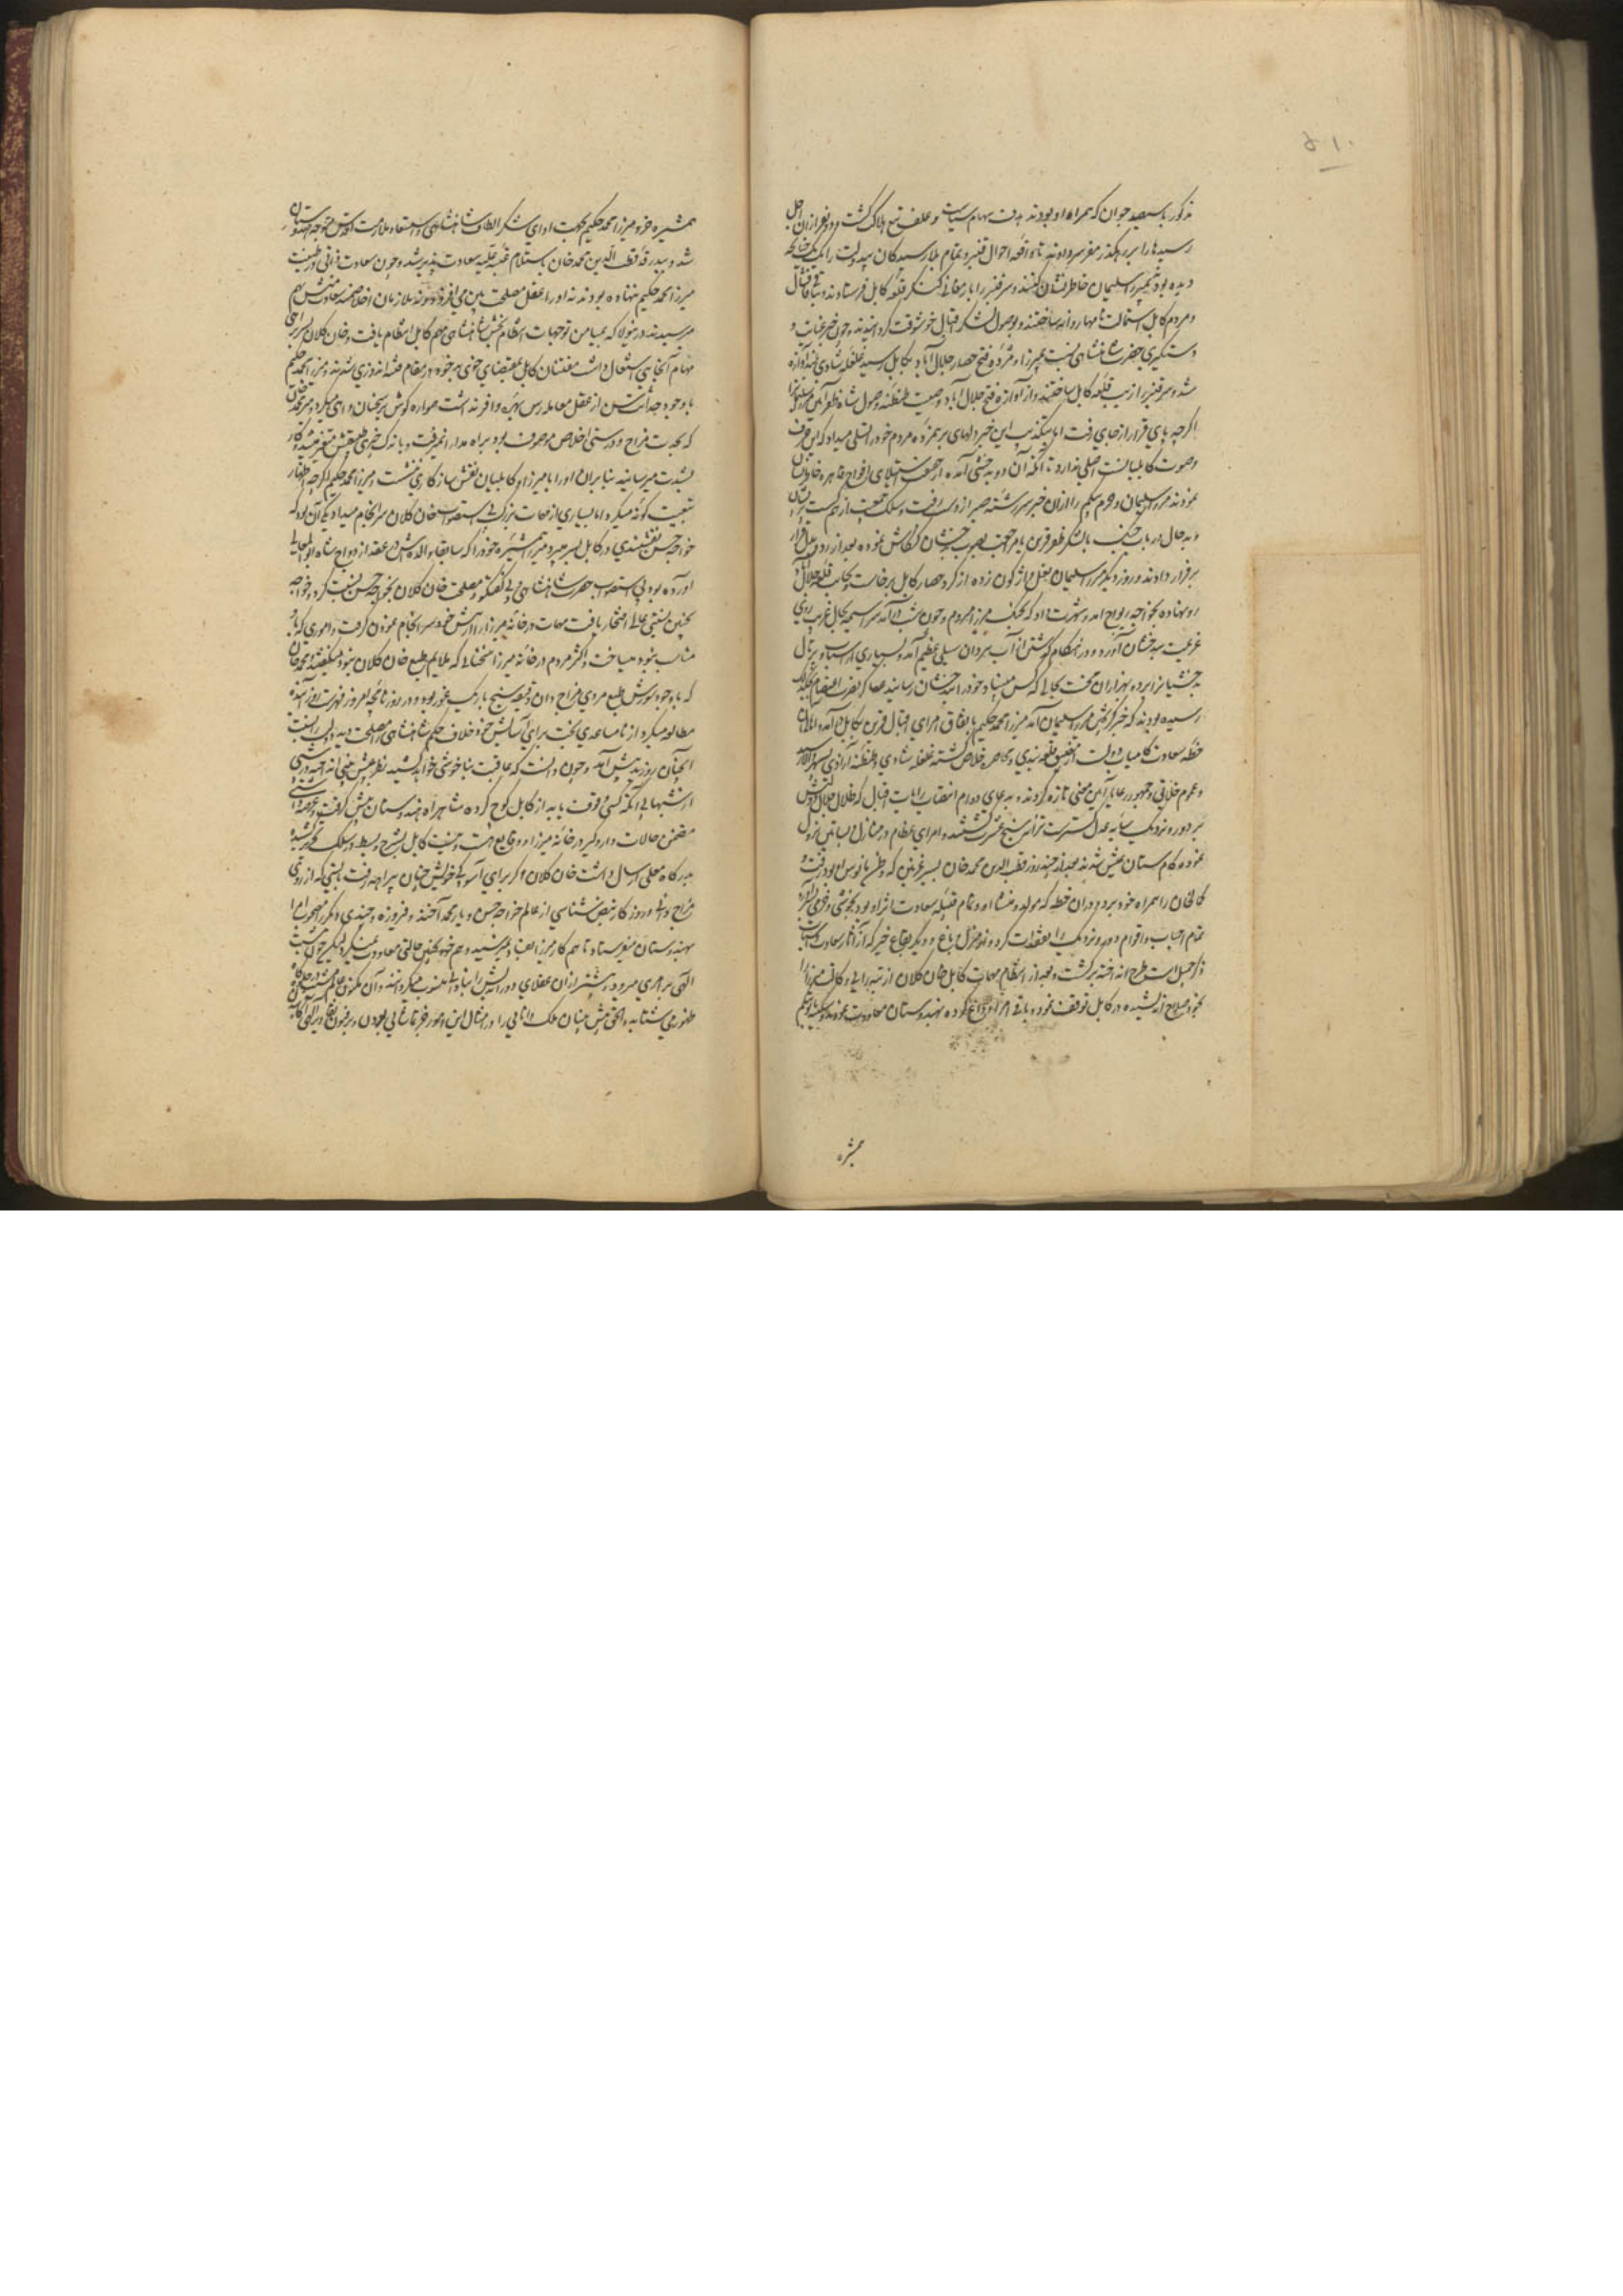 ۵۱۰
مذکور با سیصد جوان که همراه او بودند هدف سهام سیاست و علف تیغ هلاک گشت و دو نفر از آن اجل
رسیدها را بر رهگذر مفر سر دادند تا واقعه احوال قنبر و تمام بلا رسیدگان بیدولت را
دیده بودند بمیرزا سلیمان خاطرنشان کنند و سر قنبر را بارمغانی کنگر قلعه کابل فرستادند و باقی قاقشال
و مردم کابل استمالت نامها روانه ساختند و بوصول لشکر اقبال خوشوقت گردانیدند و چون خبر عنایت و
دستگیری حضرت شاهنشاهی نسبت بمیرزا و مژده فتح حصار جلال آباد بکابل رسید غلغله شادی بلندآوازه
شد و سر قنبر را زیب قلعه کابل ساختند و از آوازه فتح جلال آباد و صیت طنطنه وصول سپاه ظفر آئین میرزا سلیمان را
اگرچه پای قرار از جای رفت اما بتکذیب این خبر دلهای پژمرده مردم خود را تسلی میداد که این حرف
و صوت کابلیانست اصلی ندارد تا آنکه آن دو بدخشی آمده از حقیقت استیلای افواج قاهره خاطرنشان
نمودند میرزا سلیمان و حرم بیگم را از آن خبر سررشته صبر از دست رفت و سلک جمعیت از هم گسست
و به حال ارباب جنگ با لشکر ظفر قرین یا مراجعت بصوب بدخشان کنکاش نموده بعد از رد و بدل قرار
بر فرار دادند و روز دیگر میرزا سلیمان نعل واژگون زده از گرد حصار کابل برخاست و بجانب قلعه جلال آباد
رو نهاده بخواجه رواج آمد و شهرت داد که بجنگ میرزا میروم و چون شب درآمد سراسیمه بحال غریب روی
عزیمت ببدخشان آورد و در هنگام گذشتن از آب پروان سیلی عظیم آمد و بسیاری از اسباب و پرتال
بدخشیانرا برده بهزاران محنت بحالی که کس مبیناد خود را ببدخشان رسانیدند عساکر نصرت اعتصام بجکدلک
رسیده بودند که خبر گریختن میرزا سلیمان آمد میرزا محمد حکیم باتفاق امرای اقبال قرین بکابل درآمد و اهالی
خطه سعادت کامیاب دولت از تضییق قلعه بندی و محاصره خلاص گشته غلغله شادی و طنطنه آزادی بسپهر والا رسید
و عموم خلائق و جمهور رعایا آئین معنی تازه کردند و بدعای دوام انتصاب رایات اقبال که ظلال جلال قدسش
بر دور و نزدیک سایه عدل گسترست ترانه سنج عشرت گشتند و امرای عظام در منازل و بساتین نزول
نموده کام ستان عیش شدند بعد از چند روز قطب الدین محمد خان بسیر غزنین که وطن مانوس او بود رفت و
کاتخان را همراه خود برد در آن خطه که مولد و منشاء او و تمام قبیله سعادت انتما او بود بخوشی و خرمی برآورده
تمام احباب و اقوام دور و نزدیک را تفقدات کرد و نو منزل و باغ و دیگر بقاع خیر که از آثار سعادت و اسباب
ذکر جمیل است طرح انداخته برگشت و بعد از انتظام مهمات کابل خان کلان از تدبیرآرائی وکالت میرزا را
بخود صلاح اندیشیده در کابل توقف نمود و باقی امرا او را وداع کرده بهندوستان معاودت نمودند و سکینه بانو بیگم
همشیره
همشیره خرد میرزا محمد حکیم بجهت ادای شکر الطاف شاهنشاهی و استسعاد ملازمت اقدس متوجه هندوستان
شد و ببدرقه قطب الدین محمد خان باستلام عتبه علیه سعادت پذیر شد و چون سعادت ذاتی در طینت
میرزا محمد حکیم ننهاده بودند نه او را عقل مصلحت بین می افروخت و نه ملازمان اخلاص منش سعادت منش بهم
میرسیدند درینولا که بمیامن توجهات انتظام بخش شاهنشاهی مهم کابل انتظام یافت و خان کلان بسربراهی
مهام آنجایی اشتغال داشت مفتنان کابل بمقتضای خوی بد خود در مقام فتنه اندوزی شدند و میرزا محمد حکیم
با وجود حداثت سن از عقل معامله رس بهره وافر نداشت همواره گوش بر سخنان واهی میکرد و میر محمد خان
که بحدت مزاج و درستی اخلاص موصوف بود براه مدارا نمیرفت و باندک خبری طبیعتش متغیر میشد و کار
بشدت میرسانید بنابرآن او را با میرزا و کابلیان نقش سازگاری ننشست و میرزا محمد حکیم اگرچه اظهار
تبعیت گونه میکرد اما بسیاری از مهمات بزرگ بی استصواب خان کلان سرانجام میداد یکی آن بود که
خواجه حسن نقشبندی در کابل بسر میبرد میرزا همشیره خود را که سابقا والده اش در عقد ازدواج شاه ابوالمعالی
آورده بود بی استصواب حضرت شاهنشاهی و بی گفتگو و مصلحت خان کلان بخواجه حسن نسبت کرد و خواجه
بچنین نسبتی عالی افتخار یافت مهمات در خانه میرزا را از پیش خود سرانجام نمودن گرفت و اموری که باو
مناسب نبود میساخت و اکثر مردم در خانه میرزا سخنانی که ملایم طبع خان کلان نبود میگفتند و محمد خان
که با وجود شورش طبع مردی مزاج دان دقیقه سنج باریک بین بود و در روزنامچه امروز فهرست روز آینده
مطالعه میکرد از نامساعدی بخت برای آسایش خود خلاف حکم شاهنشاهی مصلحت دید و لب بست
آنچنان روز بدش آمد و چون دانست که عاقبت بناخوشی خواهد کشید نظر بپیش بینی انداخته در شبی
از شبهائی آنکه کسی واقف باید از کابل کوچ کرده شاهراه هندوستان پیش گرفت و عرضه داشتی
متضمن حالات دار و گیر در خانه میرزا و وقایع هست و نیست کابل بشرح و بسط در سلک تحریر کشیده
بدرگاه معلی ارسال داشت خان کلان اگر برای آسودگی خویش چنان بیراهه رفت بایستی که از روی
مزاج دانی روزگار نبض شناسی از عالم خواجه حسن و یار محمد آخته و فیروزه و چندی دیگر را مصحوب امرا
بهندوستان میفرستاد تا هم کار میرزا بفساد نمیکشید و هم خود بچنین حالتی معاودت نمیکرد لیکن چون مشیت
الهی بر امری میرود پیشتر از آن عقلای دوراندیش را نادانی منسوب میگرداند و آن مکنون عالم مشیت در جلوگاه
ظهور می شتابد و الحق پیش چنان ملک دانائی را در مثال این امور جز تماشائی بودن و بر فنون نقوش تقدیر الهی آگاه